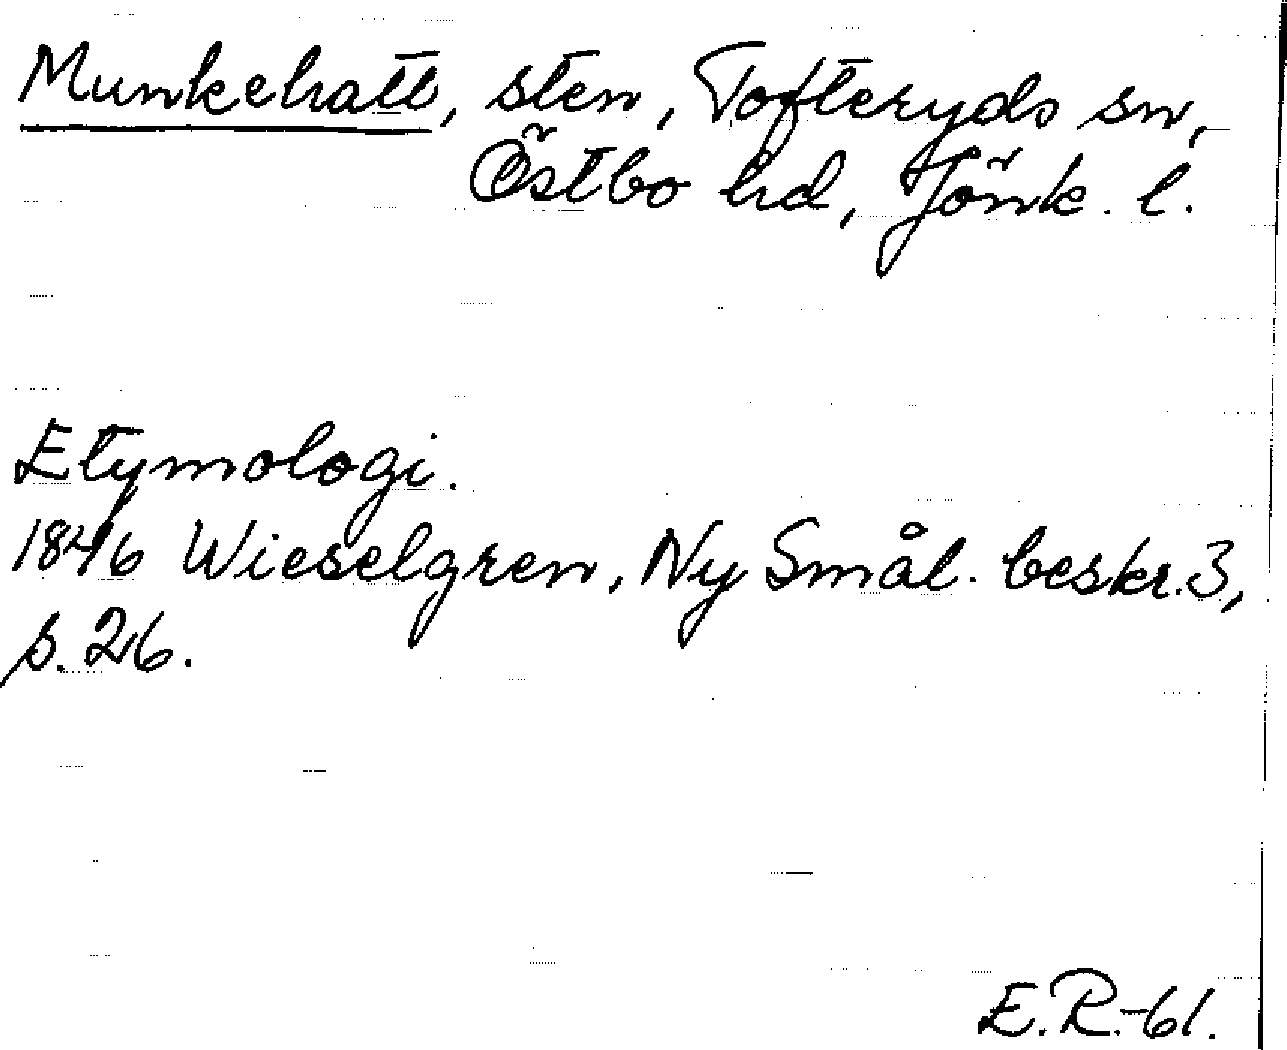 Munkehatt, sten, Tofteryds sn,
Östbo hd, Jönk. l.
Etymologi.
1846 Wieselgren, Ny Smål. beskr. 3,
s. 26.
E.R.-61.